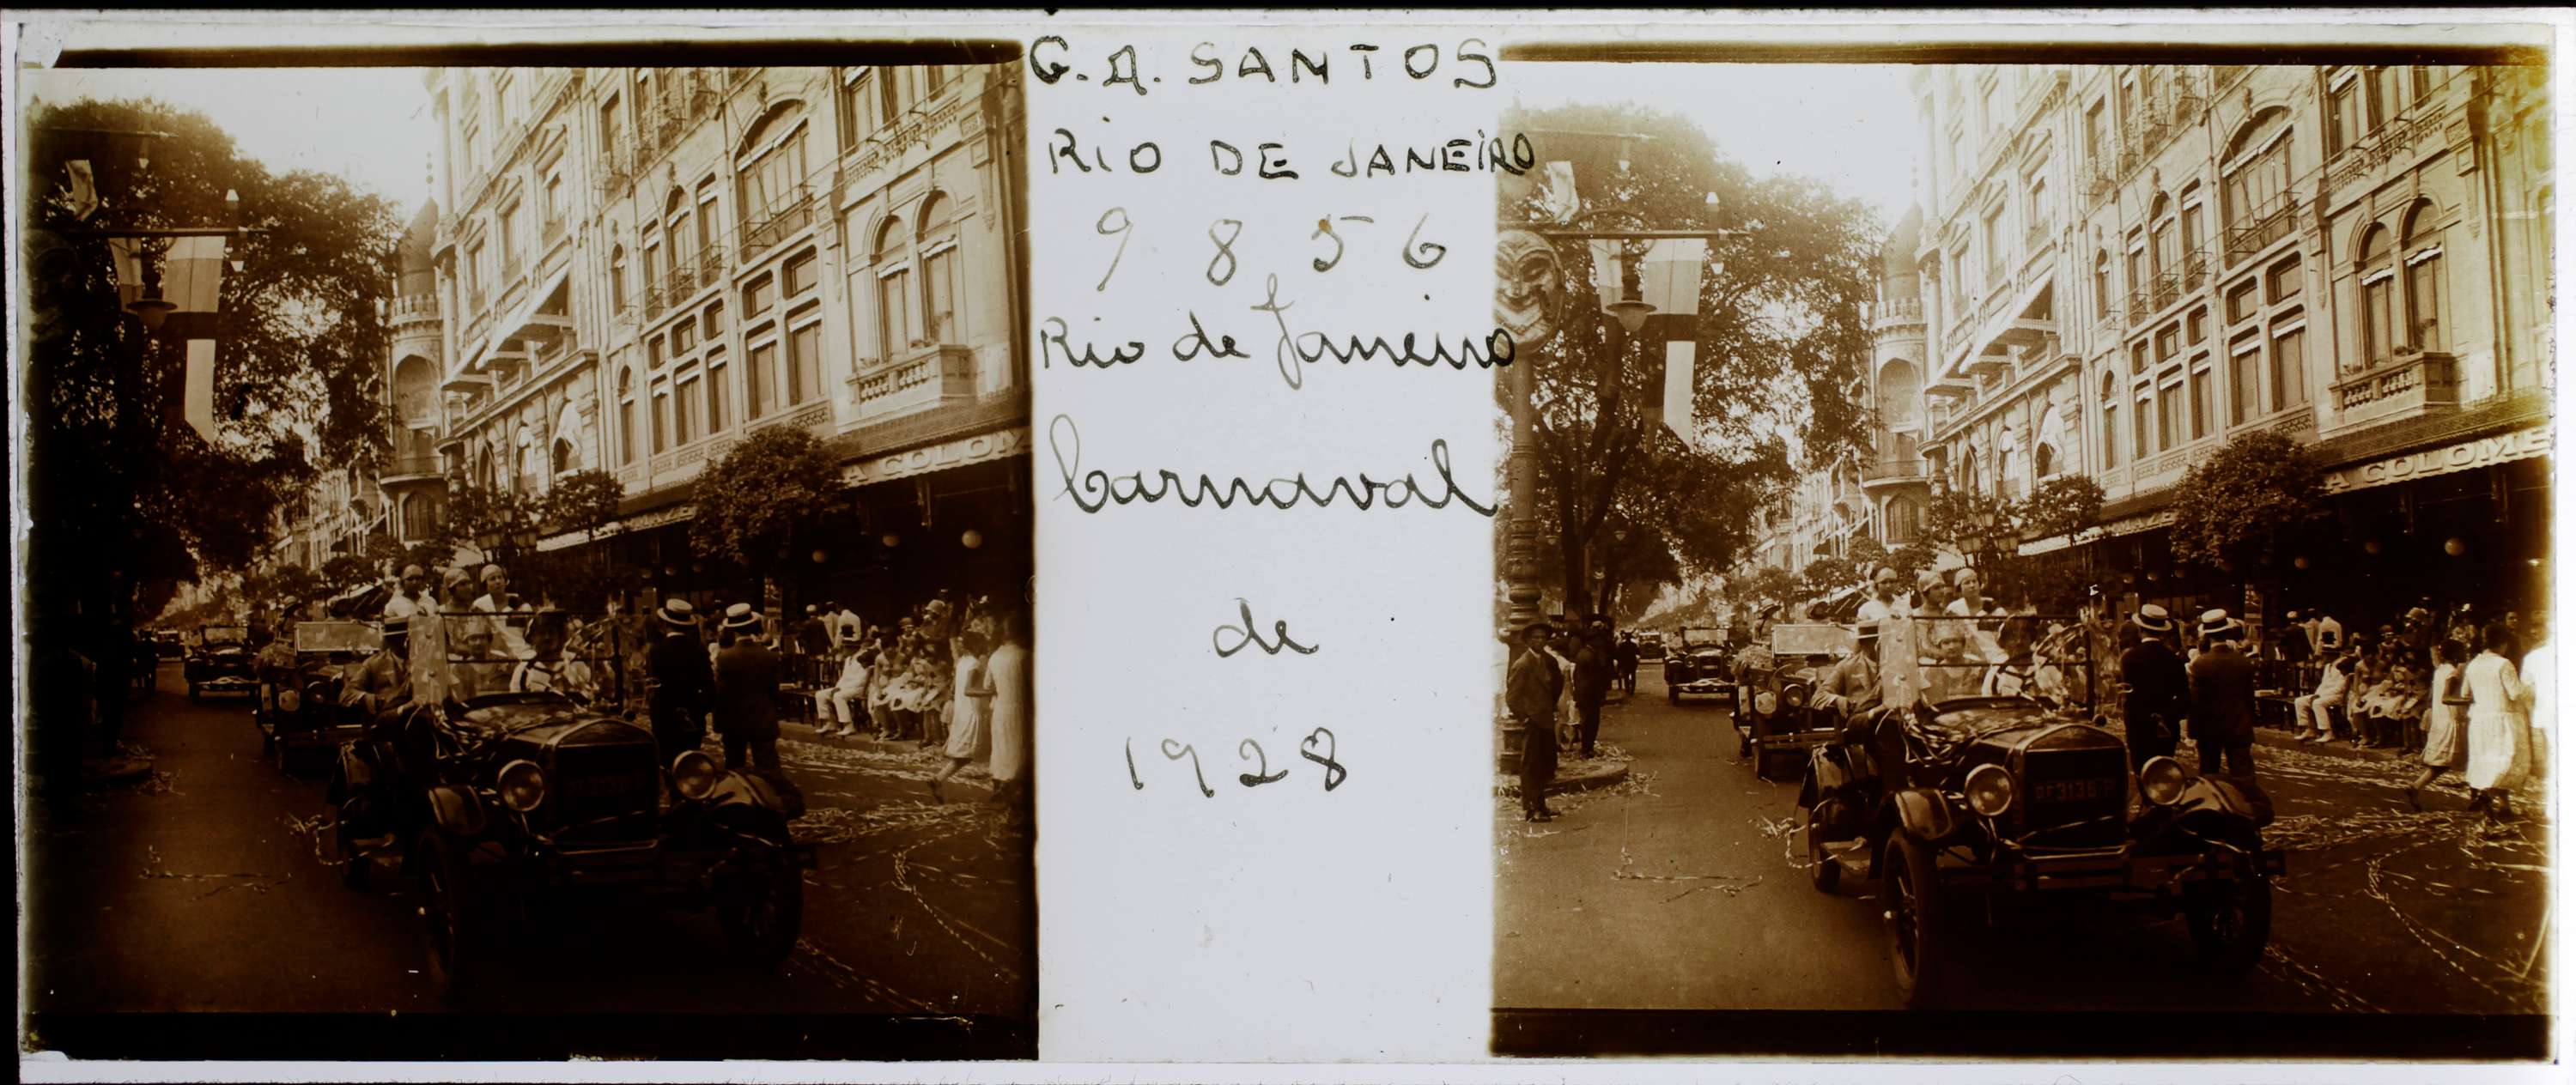 G. A. SANTOS
RIO DE JANEIRO
9 8 5 6
Rio de Janeiro
Carnaval
de
1928
A COLOM
A COLOMB